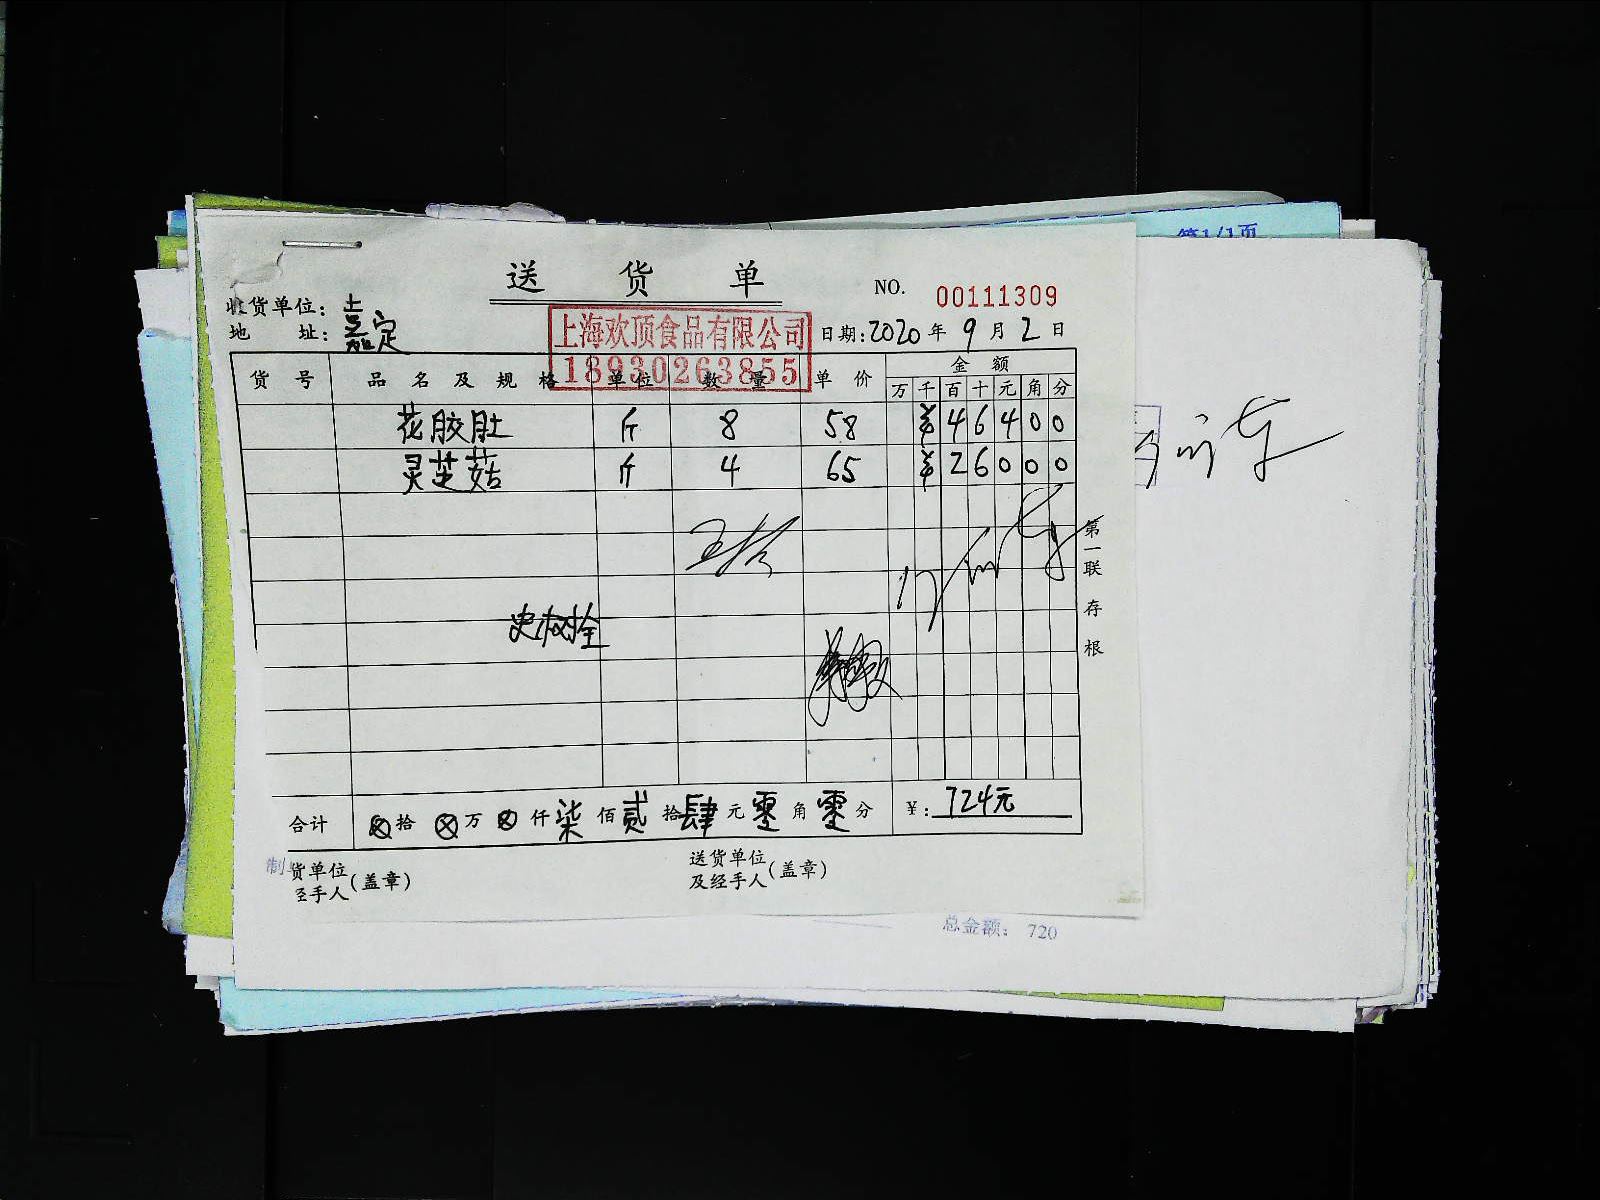 第1/1页
送货单
NO. 00111309
收货单位:
地址: 嘉定
上海欢顶食品有限公司
18930263855
日期: 2020年9月2日
货号 品名及规格 单位 数量 单价 金额
万 千 百 十 元 角 分
花胶肚 斤 8 58 ¥46400
灵芝菇 斤 4 65 ¥26000
史树拴
第一联 存根
合计 ⊗拾⊗万⊗仟柒佰贰拾肆元零角零分 ¥: 724元
制
货单位
经手人(盖章)
送货单位
及经手人(盖章)
总金额: 720